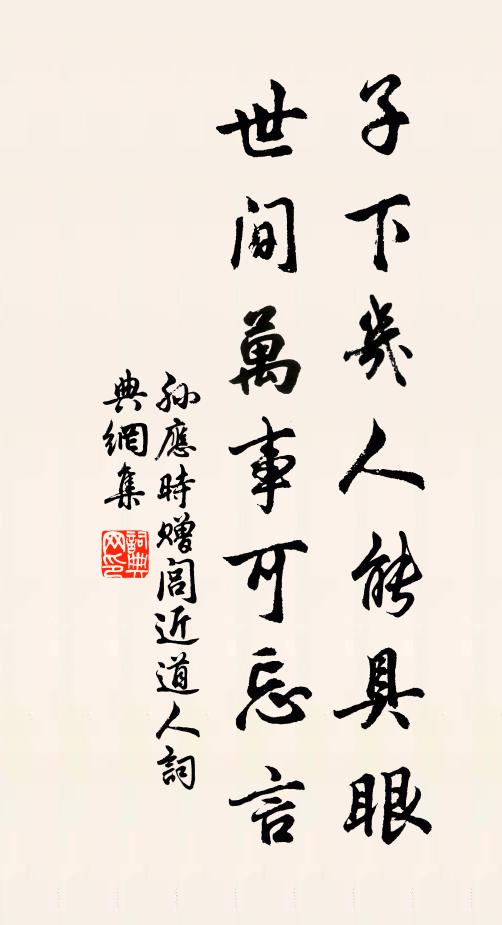 子下幾人能具眼
世間萬事可忘言
孫應時贈閭近道人詞
典網集
詞典
网印